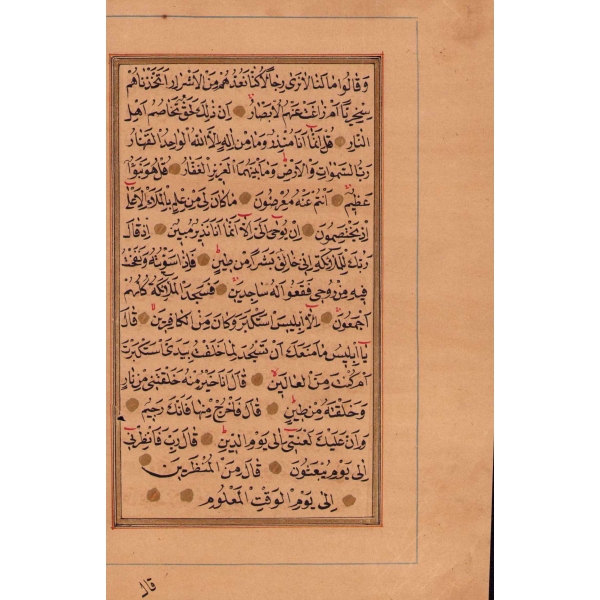 وَقَالُوا مَا لَنَا لَا نَرَى رِجَالًا كُنَّا نَعُدُّهُمْ مِنَ الْأَشْرَارِ اَتَّخَذْنَاهُمْ
سِخْرِيًّا اَمْ زَاغَتْ عَنْهُمُ الْاَبْصَارُ اِنَّ ذٰلِكَ لَحَقٌّ تَخَاصُمُ اَهْلِ
النَّارِ قُلْ اِنَّمَا اَنَا مُنْذِرٌ وَمَا مِنْ اِلٰهٍ اِلَّا اللهُ الْوَاحِدُ الْقَهَّارُ
رَبُّ السَّمٰوَاتِ وَالْاَرْضِ وَمَا بَيْنَهُمَا الْعَزِيزُ الْغَفَّارُ قُلْ هُوَ نَبَؤٌا
عَظِيمٌ اَنْتُمْ عَنْهُ مُعْرِضُونَ مَا كَانَ لِيَ مِنْ عِلْمٍ بِالْمَلَاِ الْاَعْلٰى
اِذْ يَخْتَصِمُونَ اِنْ يُوحٰى اِلَيَّ اِلَّا اَنَّمَا اَنَا نَذِيرٌ مُبِينٌ اِذْ قَالَ
رَبُّكَ لِلْمَلٰئِكَةِ اِنِّي خَالِقٌ بَشَرًا مِنْ طِينٍ فَاِذَا سَوَّيْتُهُ وَنَفَخْتُ
فِيهِ مِنْ رُوحِي فَقَعُوا لَهُ سَاجِدِينَ فَسَجَدَ الْمَلٰئِكَةُ كُلُّهُمْ
اَجْمَعُونَ اِلَّا اِبْلِيسَ اسْتَكْبَرَ وَكَانَ مِنَ الْكَافِرِينَ قَالَ
يَا اِبْلِيسُ مَا مَنَعَكَ اَنْ تَسْجُدَ لِمَا خَلَقْتُ بِيَدَيَّ اَسْتَكْبَرْتَ
اَمْ كُنْتَ مِنَ الْعَالِينَ قَالَ اَنَا خَيْرٌ مِنْهُ خَلَقْتَنِي مِنْ نَارٍ
وَخَلَقْتَهُ مِنْ طِينٍ قَالَ فَاخْرُجْ مِنْهَا فَاِنَّكَ رَجِيمٌ
وَاِنَّ عَلَيْكَ لَعْنَتِي اِلٰى يَوْمِ الدِّينِ قَالَ رَبِّ فَاَنْظِرْنِي
اِلٰى يَوْمِ يُبْعَثُونَ قَالَ فَاِنَّكَ مِنَ الْمُنْظَرِينَ
اِلٰى يَوْمِ الْوَقْتِ الْمَعْلُومِ
قال